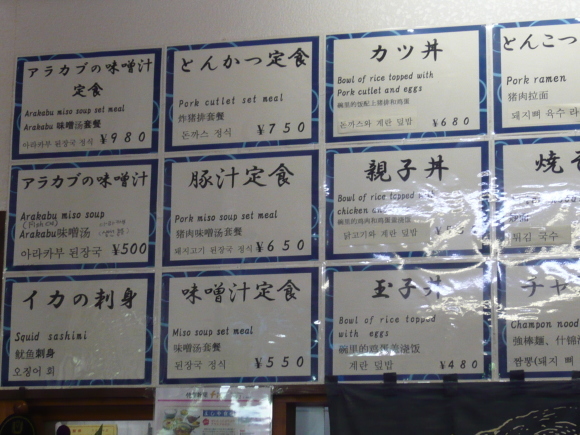 アラカブの味噌汁
定食
Arakabu miso soup set meal
Arakabu 味噌汤套餐
아라카부 된장국 정식
¥980
とんかつ定食
Pork cutlet set meal
炸猪排套餐
돈까스 정식
¥750
カツ丼
Bowl of rice topped with
Pork cutlet and eggs
碗里的饭配上猪排和鸡蛋
돈까스와 계란 덮밥
¥680
とんこつ
Pork ramen
猪肉拉面
돼지뼈 육수 라
アラカブの味噌汁
Arakabu miso soup
Arakabu味噌汤
아라카부 된장국
¥500
豚汁定食
Pork miso soup set meal
猪肉味噌汤套餐
돼지고기 된장국 정식
¥650
親子丼
Bowl of rice topped
chicken
닭고기와 계란 덮밥
焼
튀김 국수
イカの刺身
Squid sashimi
鱿鱼刺身
오징어 회
味噌汁定食
Miso soup set meal
味噌汤套餐
된장국 정식
¥550
玉子丼
Bowl of rice topped
with eggs
碗里的鸡蛋盖浇饭
계란 덮밥
¥480
チャ
Champon nood
強棒麺、什錦
짬뽕(돼지 뼈